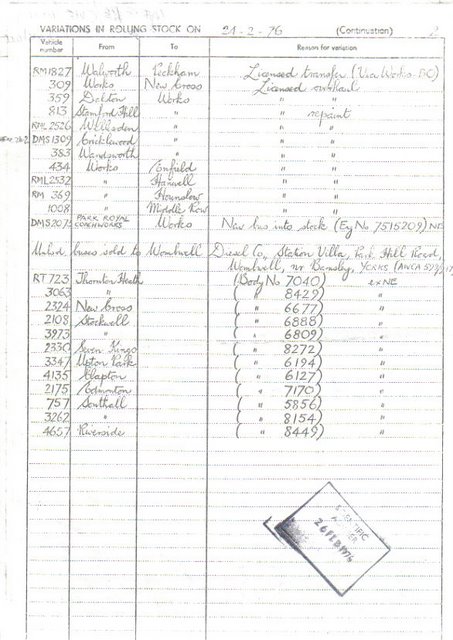 VARIATIONS IN ROLLING STOCK ON 21-2-76 (Continuation) 2
Vehicle number From To Reason for variation
RM1827 Walworth Peckham Licensed transfer (Via Works BC)
309 Works New Cross Licensed overhaul
359 Dalston Works " "
813 Stamford Hill " " repaint
RML2526 Willesden " " "
DMS1309 Cricklewood " " "
383 Wandsworth " " "
434 Works Enfield " "
RML2532 " Hanwell " "
RM 369 " Hounslow " "
1008 " Middle Row " "
DMS2075 PARK ROYAL COACHWORKS Works New bus into stock (Eng No 7515209) NS
Unlicd. buses sold to Wombwell Diesel Co, Station Villa, Park Hill Road,
Wombwell, nr Barnsley, YORKS
RT 723 Thornton Heath (Body No 7040) exNE
3063 " ( " 8429) "
2324 New Cross ( " 6677) "
2108 Stockwell ( " 6888) "
3973 " ( " 6809) "
2330 Seven Kings ( " 8272) "
3347 Upton Park ( " 6194) "
4135 Clapton ( " 6127) "
2175 Edmonton ( " 7170) "
757 Southall ( " 5856) "
3262 " ( " 8154) "
4657 Riverside ( " 8449) "
26 FEB 1976